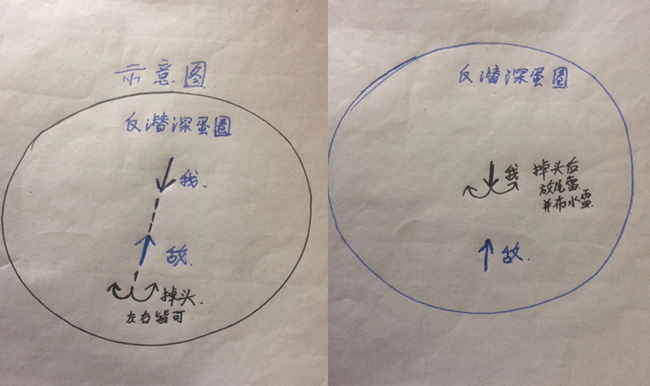 示意图
反潜深蛋圈
我.
敌.
掉头.
左右皆可
反潜深蛋圈
我
掉头后
放尾雷
并布水雷.
敌.